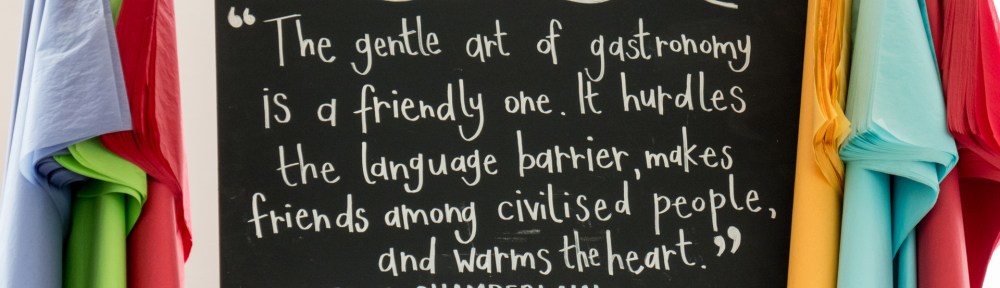 “The gentle art of gastronomy
is a friendly one. It hurdles
the language barrier, makes
friends among civilised people,
and warms the heart.”